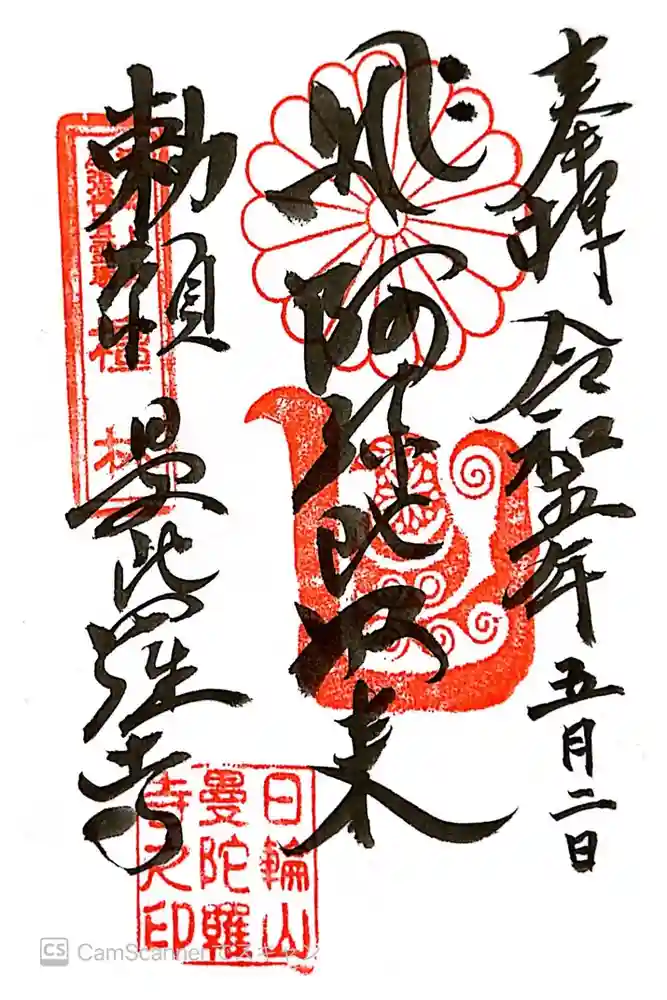 奉拝 令和五年五月二日
阿弥陀如来
勅願 曼陀羅寺
日輪山
曼陀羅
寺之印
CS CamScanner